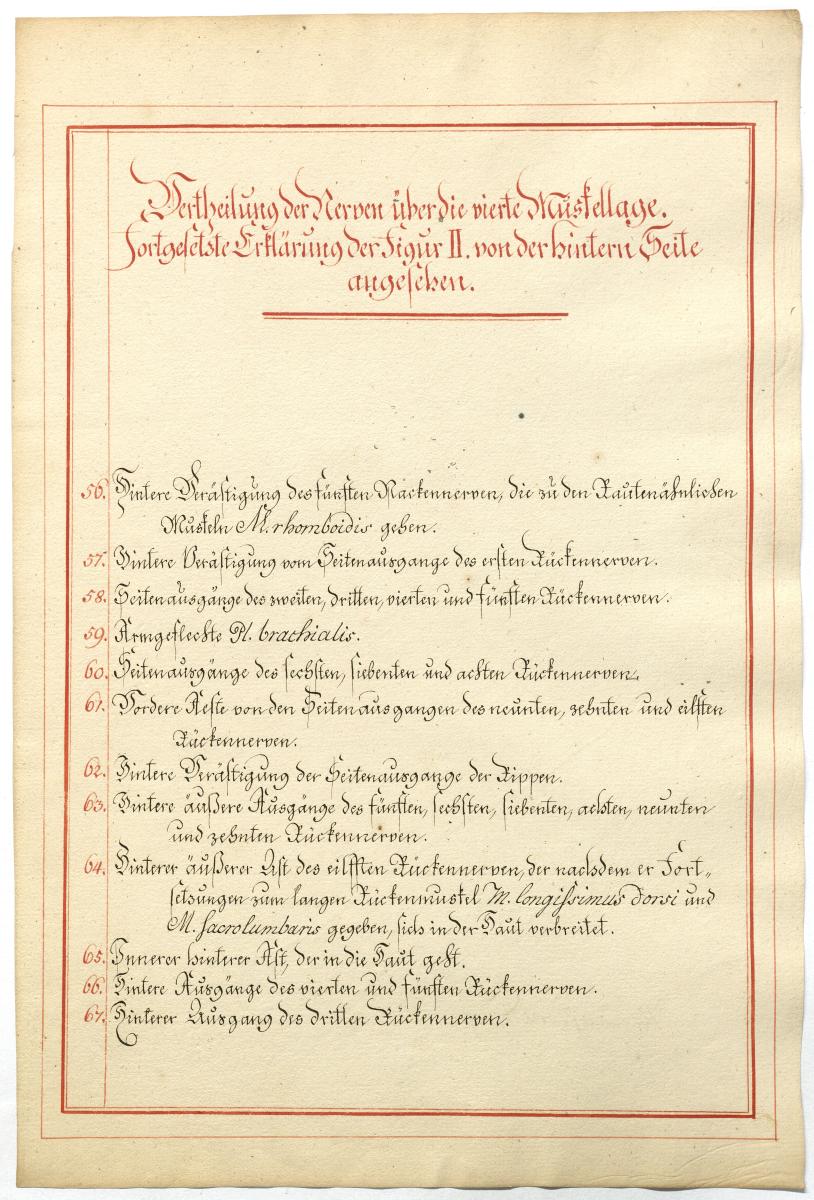 Vertheilung der Nerven über die vierte Muskellage.
Fortgesetzte Erklärung der Figur II. von der hintern Seite
angesehen.
56. Hintere Verästigung des fünften Nackennerven, die zu den Rautenähnlichen
Muskeln M. rhomboidis gehen.
57. Hintere Verästigung vom Seitenausgange des ersten Rückennerven.
58. Seitenausgänge des zweiten, dritten, vierten und fünften Rückennerven.
59. Armgeflechte Pl. brachialis.
60. Seitenausgänge des sechsten, siebenten und achten Rückennerven.
61. Vordere Aeste von den Seitenausgangen des neunten, zehnten und eilften
Rückennerven.
62. Hintere Verästigung der Seitenausgange der Rippen.
63. Hintere äußere Ausgänge des fünften, sechsten, siebenten, achten, neunten
und zehnten Rückennerven.
64. Hinterer äußerer Ast des eilften Rückennerven, der nachdem er Fort„
setzungen zum langen Rückenmuskel M. longissimus dorsi und
M. sacrolumbaris gegeben, sich in der Haut verbreitet.
65. Innerer hinterer Ast, der in die Haut geht.
66. Hintere Ausgänge des vierten und fünften Rückennerven.
67. Hinterer Ausgang des dritten Rückennerven.